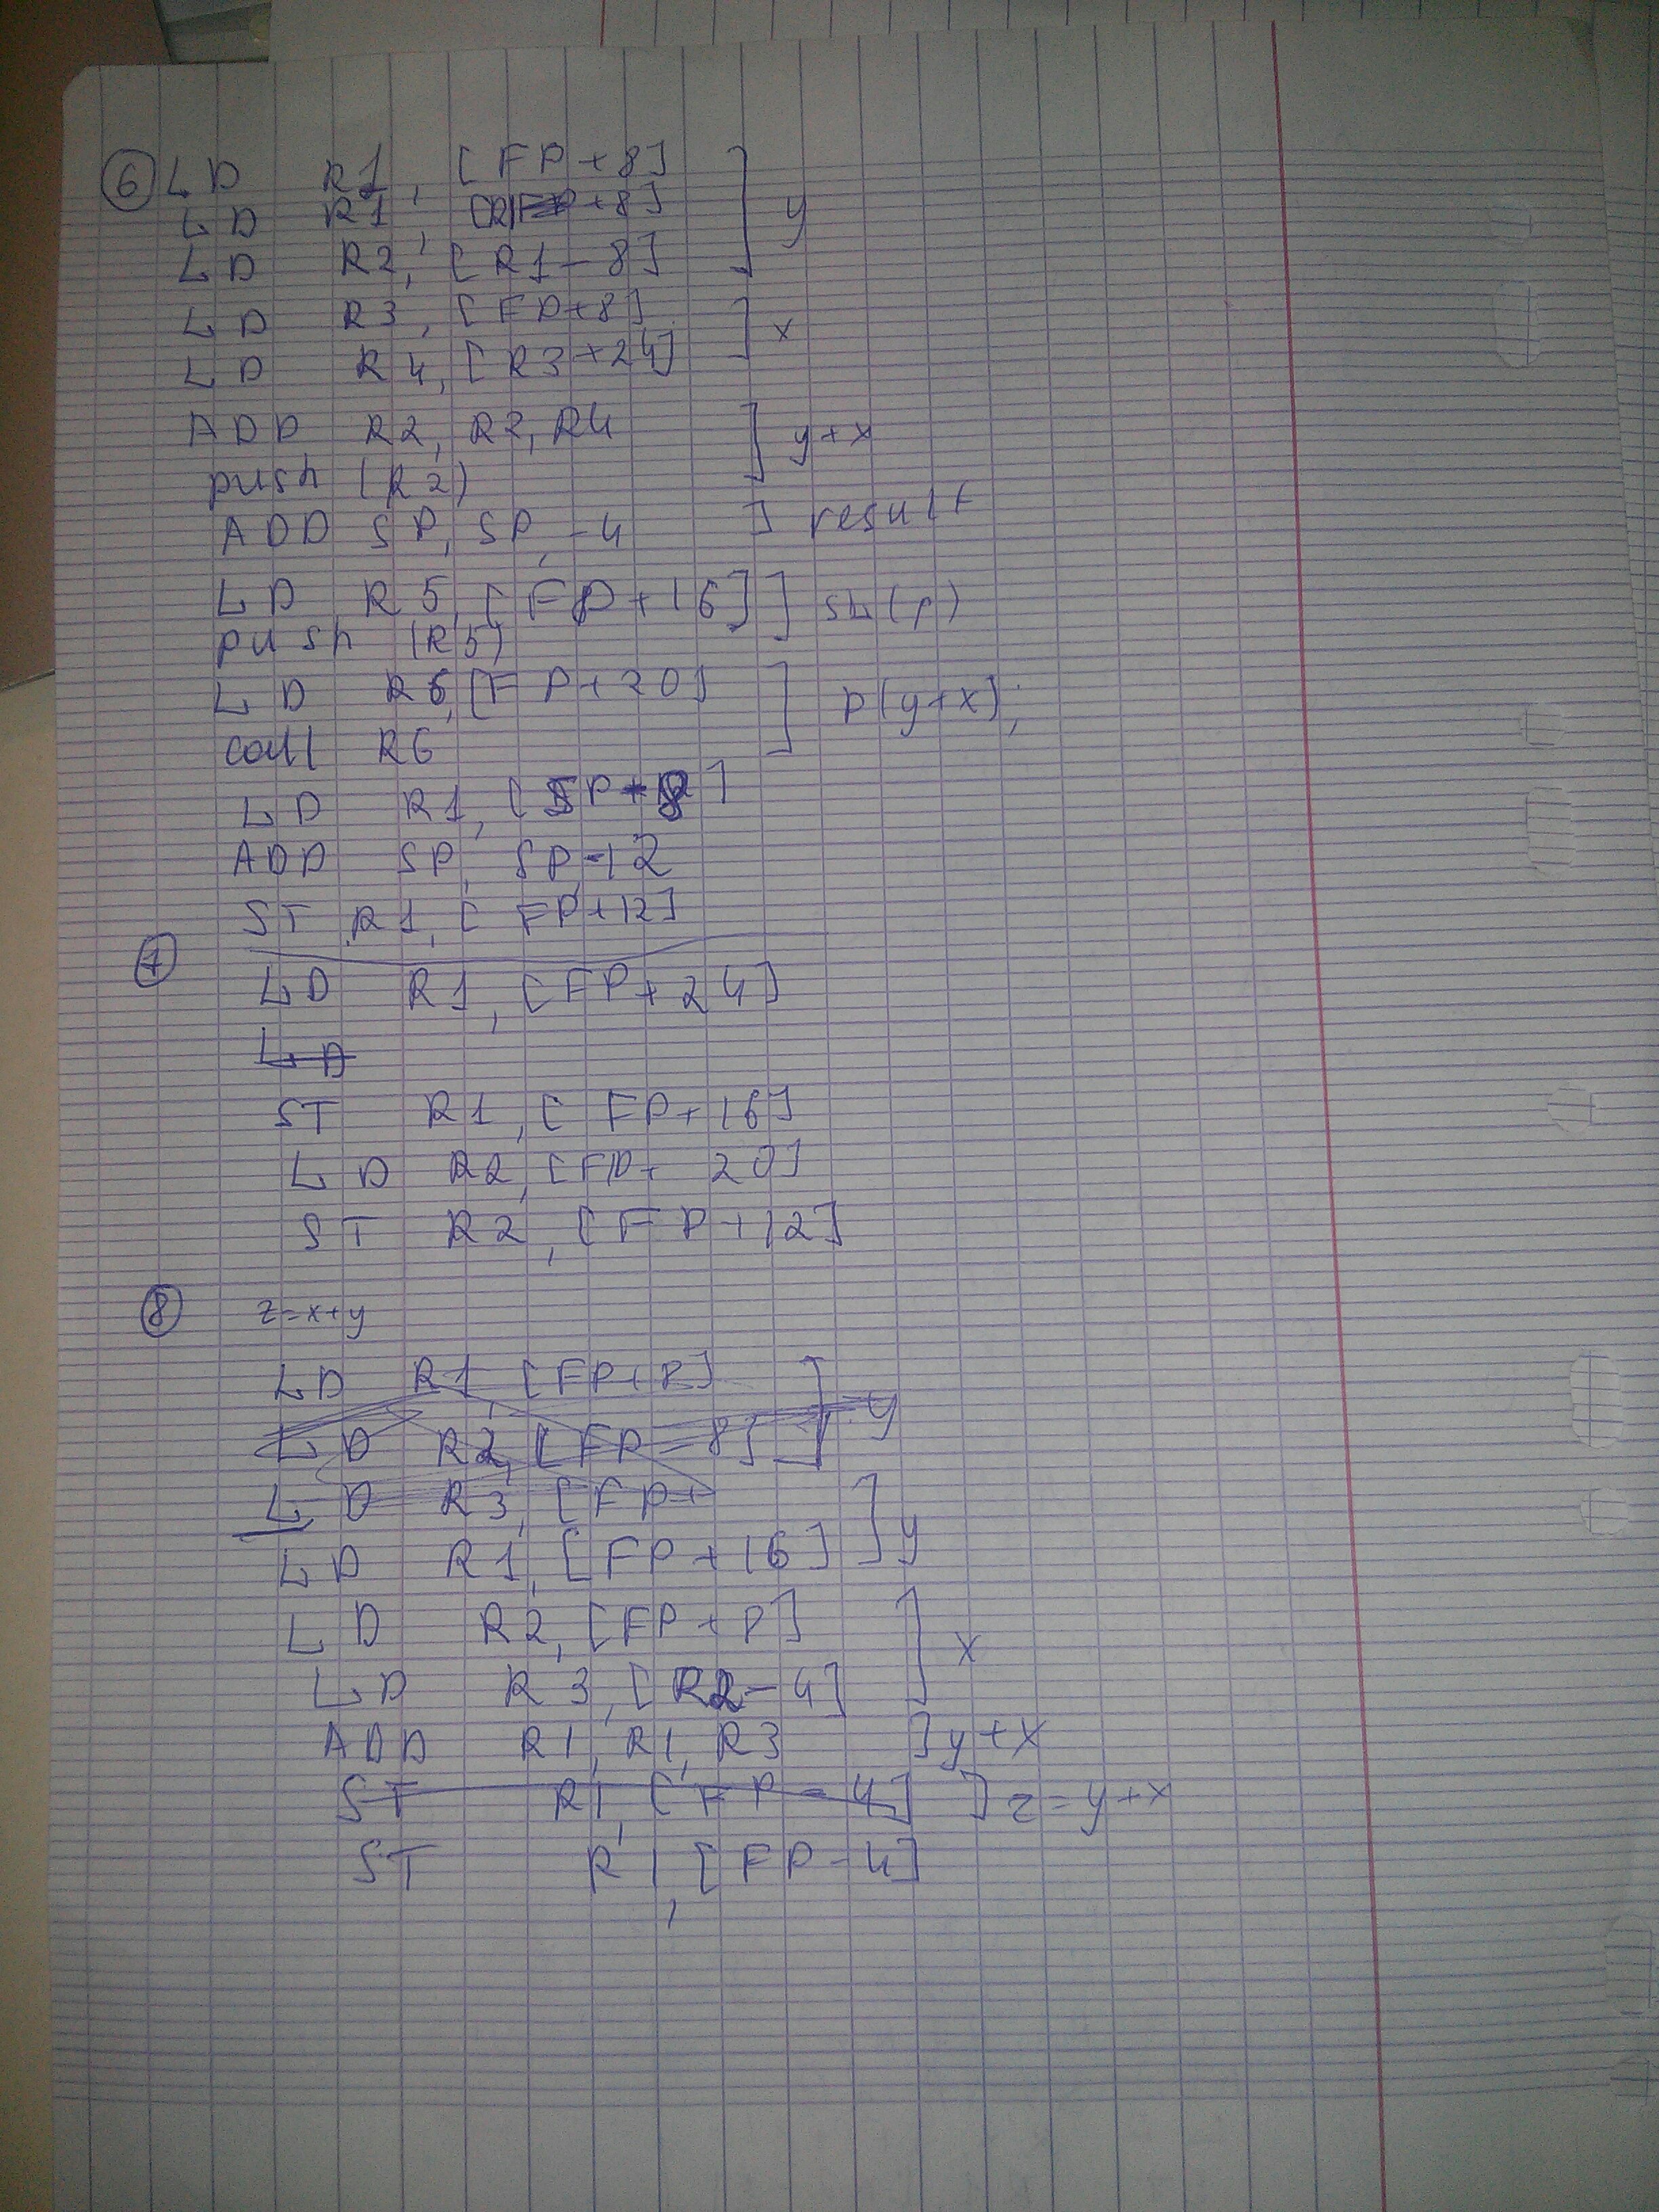 ⑥ LD R1, [FP+8]
LD R1, [R1+8] ] y
LD R2, [R1-8]
LD R3, [FP+8] ] x
LD R4, [R3+24]
ADD R2, R2, R4 ] y+x
push (R2)
ADD SP, SP, -4 ] result
LD R5, [FP+16] ] SL(p)
push (R5)
LD R6, [FP+20] ] p(y+x);
call R6
LD R1, [SP+8]
ADD SP, SP+12
ST R1, [FP+12]
⑦
LD R1, [FP+24]
LD
ST R1, [FP+16]
LD R2, [FP+20]
ST R2, [FP+12]
⑧ z=x+y
LD R1, [FP+8] ] y
LD R2, [FP-8]
LD R3, [FP+
LD R1, [FP+16] ] y
LD R2, [FP+8] ] x
LD R3, [R2-4]
ADD R1, R1, R3 ] y+x
ST R1, [FP-4] ] z=y+x
ST R1, [FP-4]